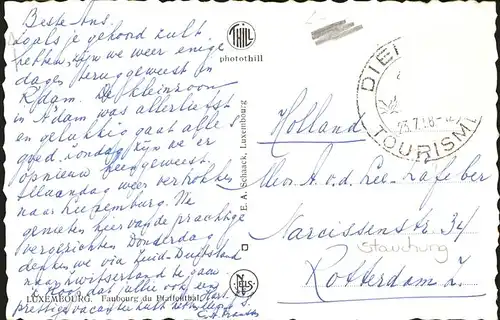 Beste Ans.
zoals je gehoord zult
hebben, zijn we weer enige
dagen teruggeweest in
R'dam. De kleinzoon
in A'dam was allerliefst
en gelukkig gaat alles
goed. Zondag zijn we er
opnieuw heengeweest.
Maandag weer vertrokken
naar Luxemburg. We
genieten hier van de prachtige
vergezichten. Donderdag
denken we via Zuid-Duitsland
naar Zwitserland te gaan
Ik hoop dat jullie ook een
prettige vacantie hebt
LUXEMBOURG. Faubourg du Pfaffenthal
THILL
photothill
E. A. Schaack, Luxembourg
NELS
DIE
23.7.
TOURISM
Holland
Mevr. A. v. d. Lee-
Narcissenstr. 34
Stauchung
Rotterdam Z.